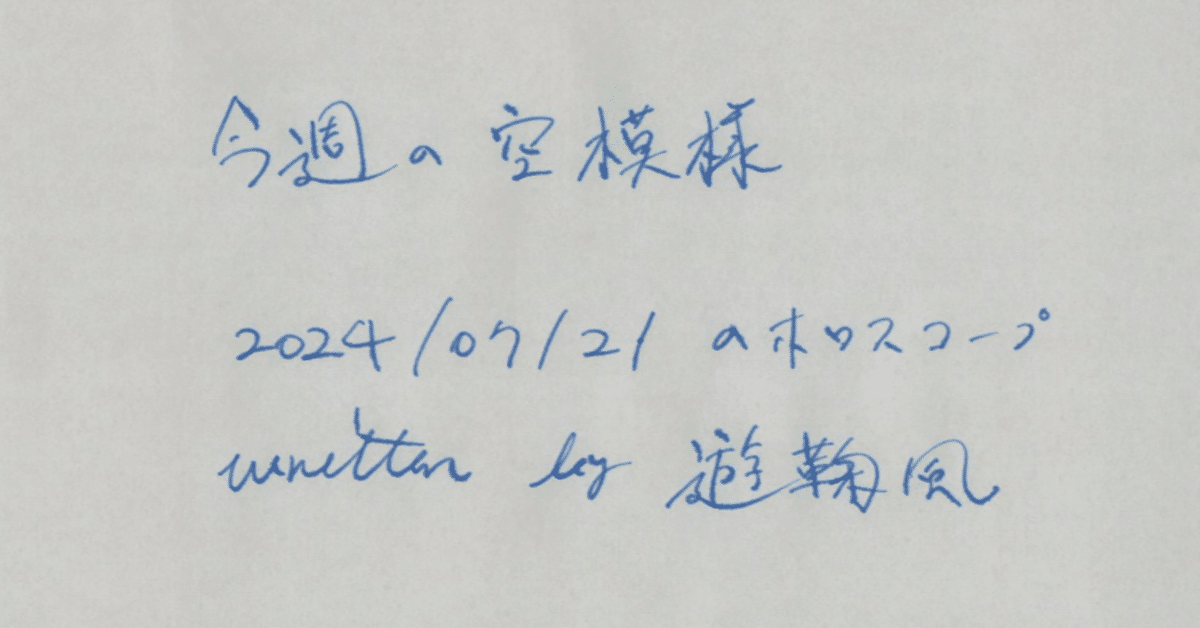 今週の空模様
2024/07/21 のホロスコープ
written by 遊鞠風